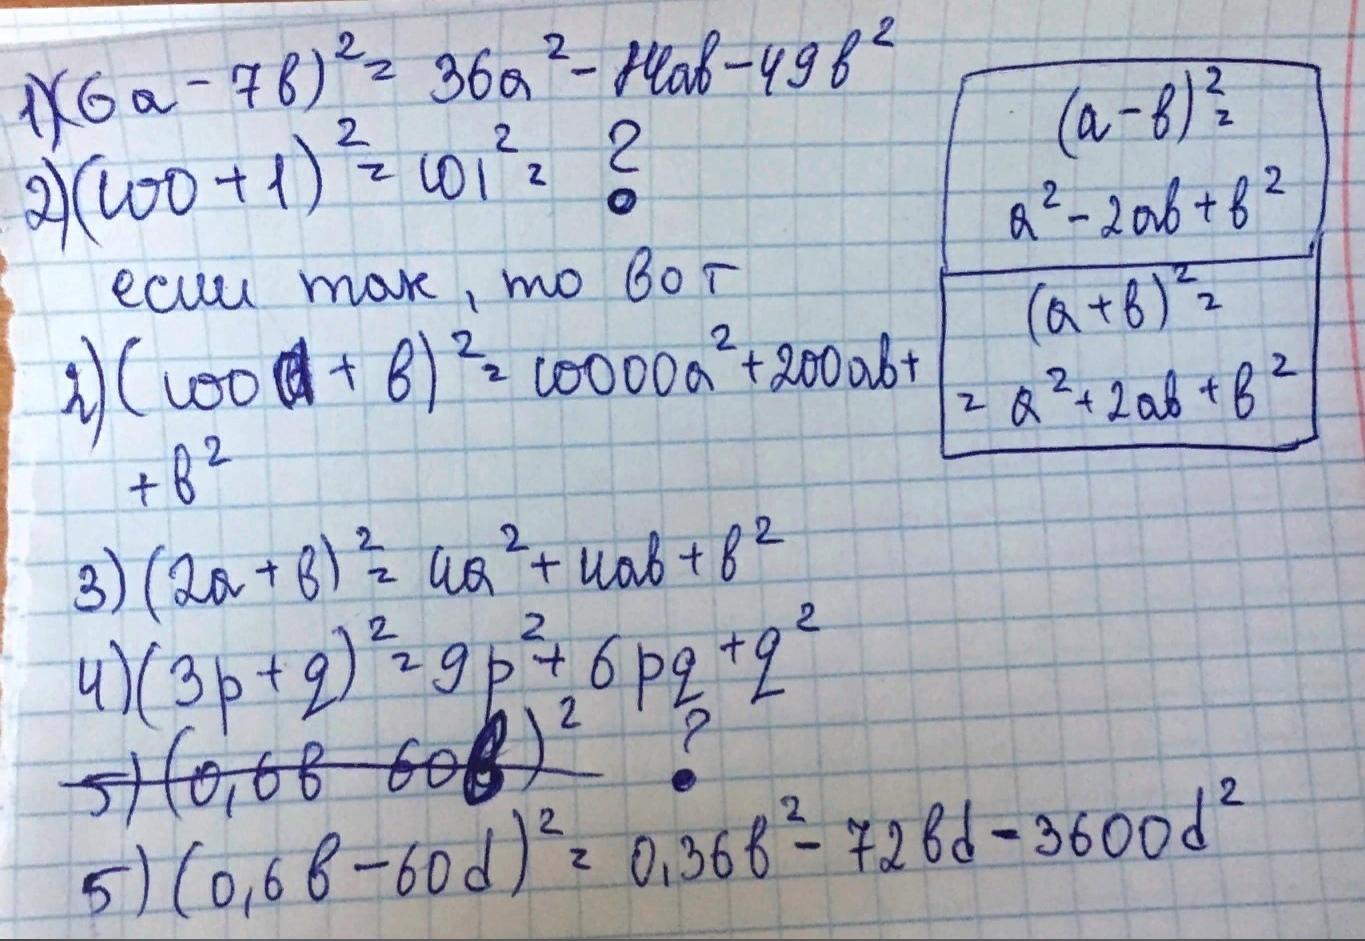 1)(6а - 7в)² = 36а² - 84ав - 49в²
2)(100 + 1)² = 101² = ?
если так, то вот
2)(100а + в)² = 10000а² + 200ав +
+ в²
3)(2а + в)² = 4а² + 4ав + в²
4)(3p + q)² = 9p² + 6pq + q²
5)(0,6в 60в)² ?
5)(0,6в - 60d)² = 0,36в² - 72вd - 3600d²
(а - в)² =
а² - 2ав + в²
(а + в)² =
= а² + 2ав + в²